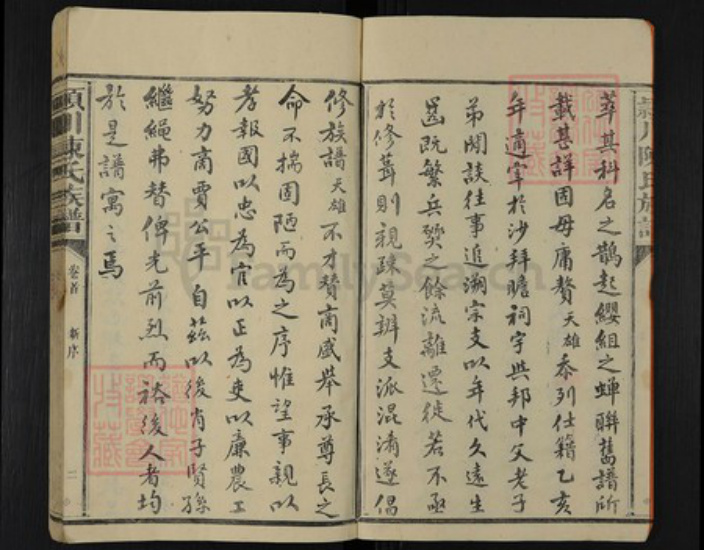 葬其科名之鵲起纓組之蟬聯舊譜所
載甚詳固毋庸贅天雄忝列仕籍乙亥
年適宰於沙拜瞻祠宇與邦中父老子
弟閒談往事追溯宗支以年代久遠生
齒既繁兵燹之餘流離遷徙若不亟
於修葺則親疎莫辨支派混淆遂倡
修族譜天雄不才贊商盛舉承尊長之
命不揣固陋而為之序惟望事親以
孝報國以忠為官以正為吏以廉農工
努力商賈公平自茲以後肖子賢孫
繼繩弗替俾光前烈而裕後人者均
於是譜寓之焉
潁川陳氏族譜
卷首 新序
二
FamilySearch